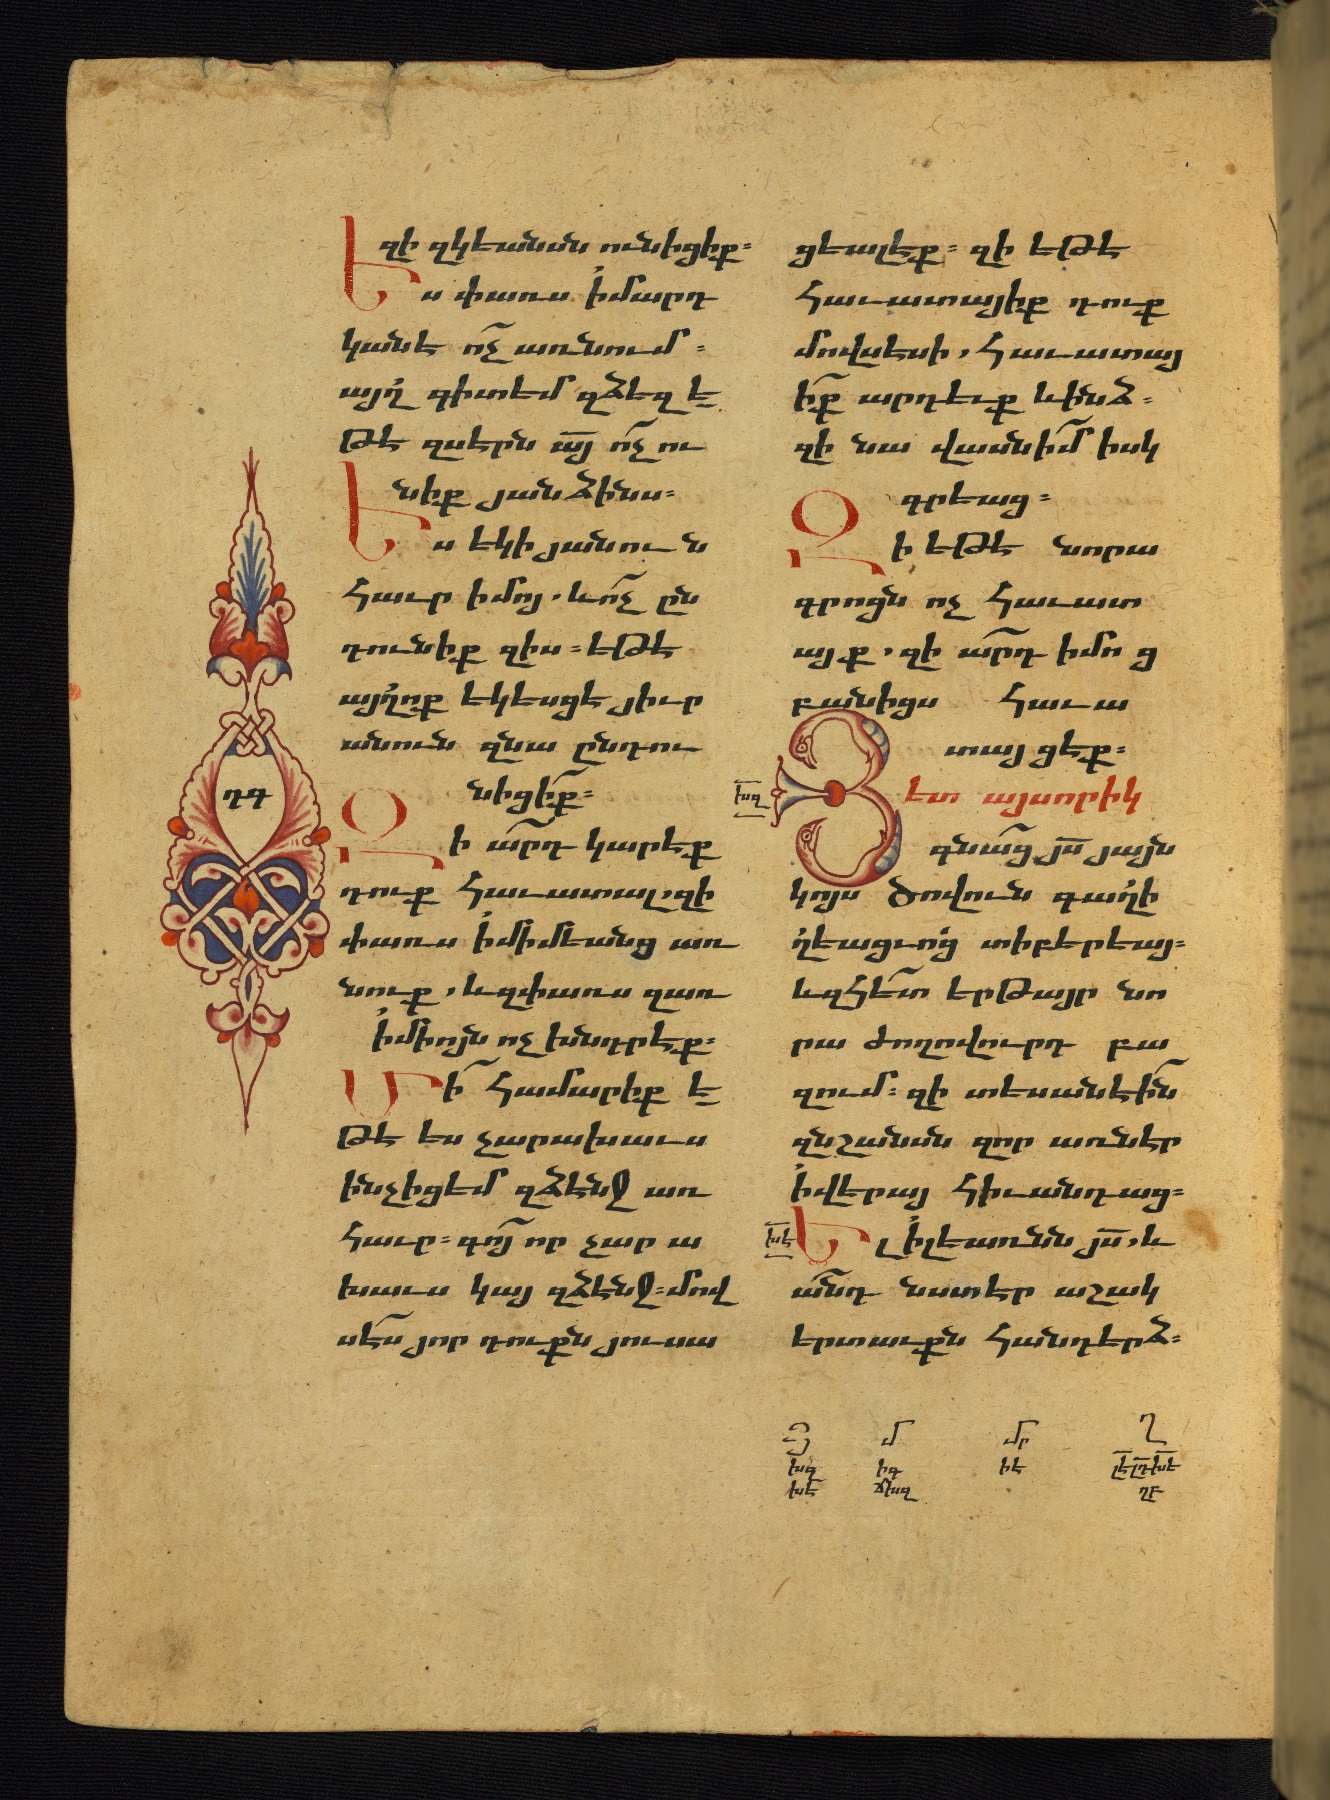 զի զկեանսն ունիցիք։
Ես փառս ի մարդ
կանէ ո՛չ առնում։
այղ գիտեմ զձեզ ե
թե զսերն ա՟յ ո՛չ ու
նիք յանձինս։
Ես եկի յանուն
հաւր իմոյ. և ո՛չ ըն
դունիք զիս։ եթե
այղոք եկեսցե յիւր
անուն զնա ընդու
նիցիք։
Զի ա՟րդ կարեք
դուք հաւատալ. զի
փառս ի միմեանց առ
նուք, և զփառս զառ
ի միոյն ոչ խնդրեք։
Մի համարիք ե
թե ես չարախաւս
ինչ իցեմ զձենջ առ
հաւր։ գո՛յ որ չար ա
խաւս կայ զձենջ։ մով
սես յոր դուքն յուսա
ցեալեք։ զի եթե
հաւատայիք դուք
մովսեսի, հաւատայ
իք արդեւք և ինձ։
զի նա վասն իմ իսկ
գրեաց։
Զի եթե նորա
գրոցն ոչ հաւատ
այք, զի ա՟րդ իմոց
բանիցս հաւա
տայցեք։
դգ
խզ
Յետ այսորիկ
գնաց յ՟ս յայն
կոյս ծովուն գաղի
ղեացւոց տիբերեայ։
և զհետ երթայր նո
րա ժողովուրդ բա
զում։ զի տեսանեին
զնշանսն զոր առներ
ի վերայ հիւանդաց։
խե
Ել ի լեառնն յ՟ս, և
անդ նստեր աշակ
երտաւքն հանդերձ։
Յ մ մր Ղ
խզ իգ իե լե լդ խե
խե ճխզ ղբ